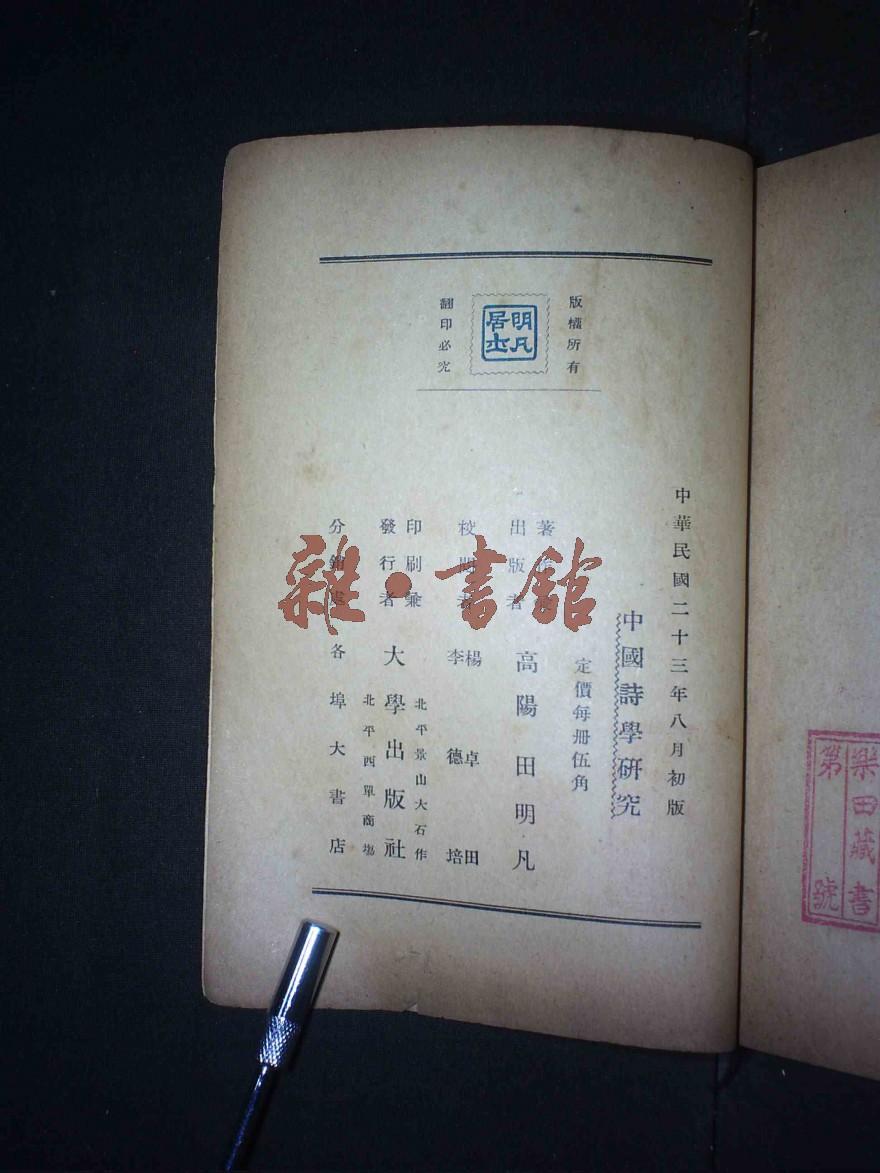 版權所有
明凡
居士
翻印必究
中華民國二十三年八月初版
中國詩學硏究
定價每冊伍角
著作者
出版者
高陽田明凡
校閱者
楊卓田
李德培
印刷兼
發行者
大學出版社
北平景山大石作
北平西單商場
分銷處
各埠大書店
雜·書館
樂田藏書
第號